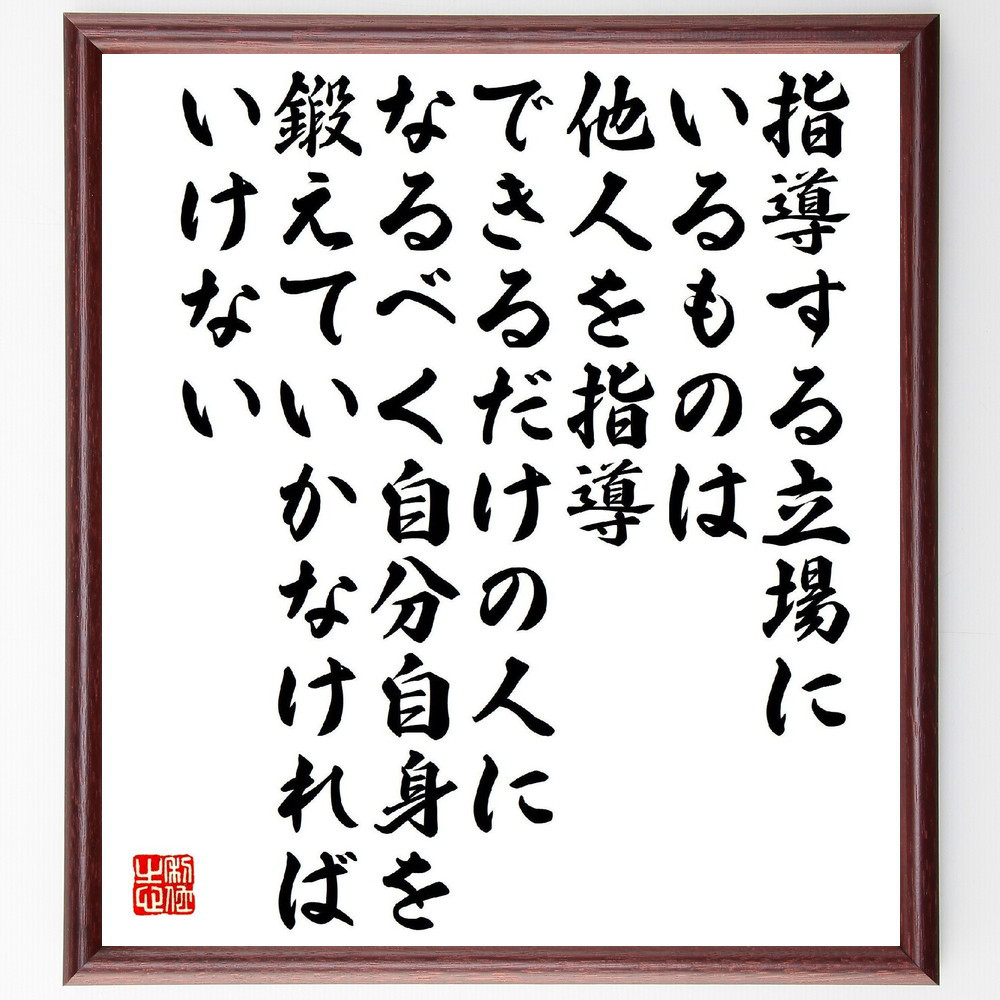 指導する立場に
いるものは
他人を指導
できるだけの人に
なるべく自分自身を
鍛えていかなければ
いけない